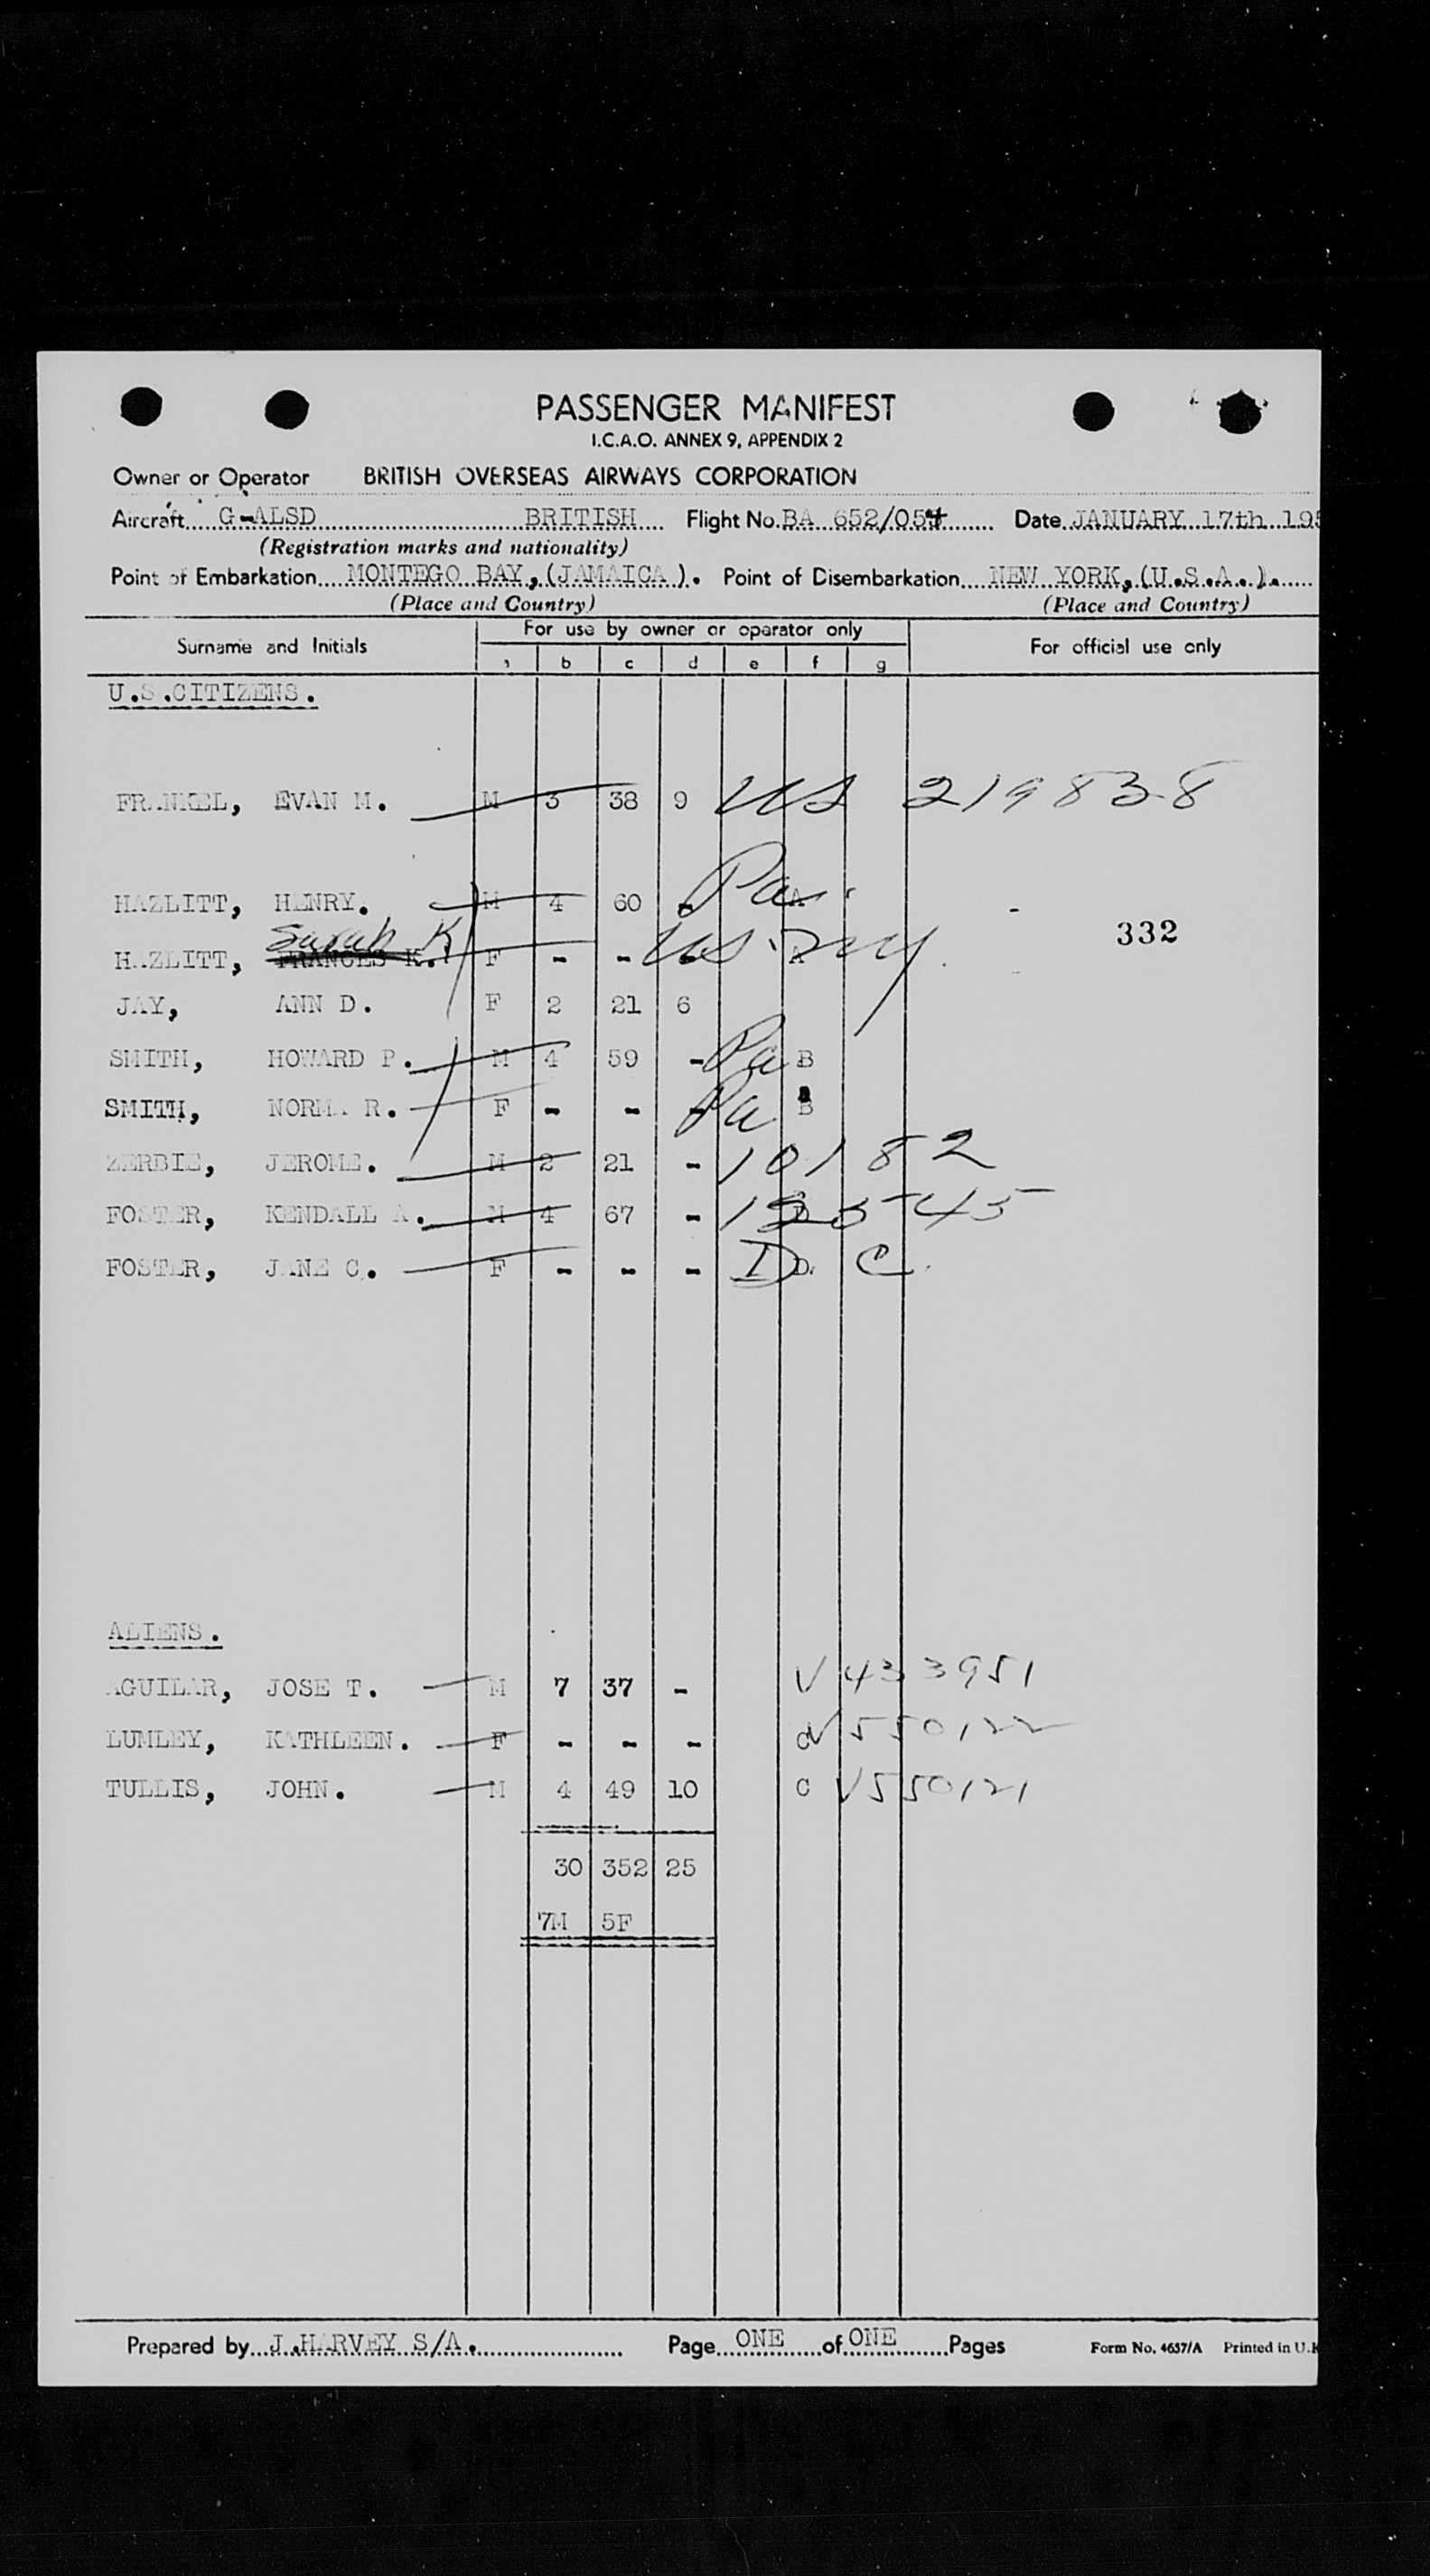 PASSENGER MANIFEST
I.C.A.O. ANNEX 9, APPENDIX 2
Owner or Operator BRITISH OVERSEAS AIRWAYS CORPORATION
Aircraft G-ALSD BRITISH Flight No. BA 652/054 Date JANUARY 17th 195
(Registration marks and nationality)
Point of Embarkation MONTEGO BAY, (JAMAICA). Point of Disembarkation NEW YORK, (U.S.A.).
(Place and Country) (Place and Country)
Surname and Initials For use by owner or operator only For official use only
a b c d e f g
U.S.CITIZENS.
FRANKEL, EVAN M. M 3 38 9 US 219838
HAZLITT, HENRY. M 4 60 - Pa. A
332
Sarah K
HAZLITT, FRANCES K. F - - - US. NY A
JAY, ANN D. F 2 21 6
SMITH, HOWARD P. M 4 59 - Pa B
SMITH, NORMA R. F - - - Pa B
ZERBIE, JEROME. M 2 21 - 10182
FOSTER, KENDALL A. M 4 67 - D
FOSTER, JANE C. F - - - D. C. D.
ALIENS.
AGUILAR, JOSE T. M 7 37 - V 433951
LUMLEY, KATHLEEN. F - - - C V550122
TULLIS, JOHN. M 4 49 10 C V550121
30 352 25
7M 5F
Prepared by J.HARVEY S/A. Page ONE of ONE Pages Form No. 4637/A Printed in U.K